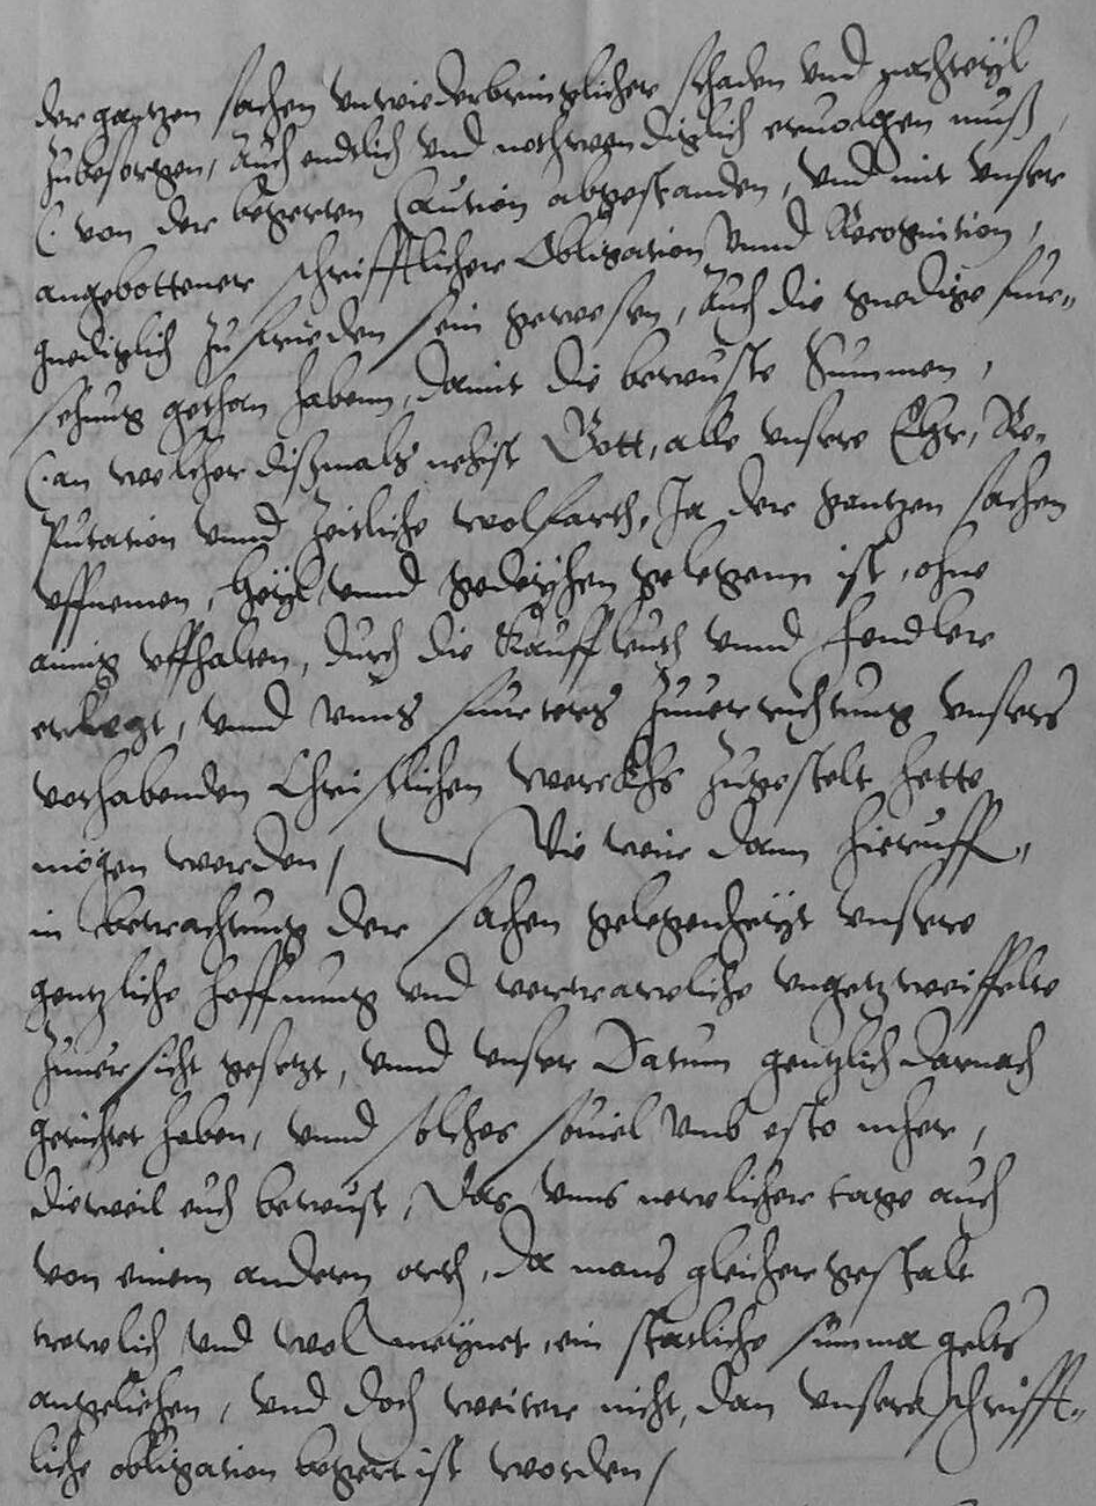 der gantzen sachen unwiederbringlicher schaden vnd nachteyl
zubesorgen, auch endtlich vnd nothwendiglich eruolgen muß,
(. von der begerten Caution abgestanden, vnd mit vnser
angebottener schrifftlicher Obligation vnnd Recognition,
gnediglich zufrieden sein gewesen, auch die gnedige fur„
sehung gethan habenn, damit die bewuste Summen,
(. an welcher dißmals nehist Gott, alle vnsere Ehr, Re„
putation vnnd zeitliche wolfarth, Ja der gantzen sachen
vffnemen, heyl vnnd gedeyhen gelegenn ist, ohne
ainig vffhalten, durch die Kauffleuth vnnd hendler
erlegt, vnnd vnns furters zuuerrichtung vnsers
vorhabenden Christlichen werckhs zugestelt hette
mögen werden / Wie wir dann hieruff„
in betrachtung der sachen gelegenheyt vnsere
gentzliche hoffnung vnd vertrawliche vngetzweiffelte
zuuersicht gesetzt, vnnd vnser Datum gentzlich darnach
gerichtet haben, vnnd solches souiel vmb esto mher,
dieweil euch bewust, Das vnns newlicher tage auch
von einem andern orth, da mans gleicher gestalt
trewlich vnd wol meynet, ein statliche summa gelts
angeliehen, vnd doch weiter nicht, dan vnsere schrifft„
liche obligation begert ist worden /